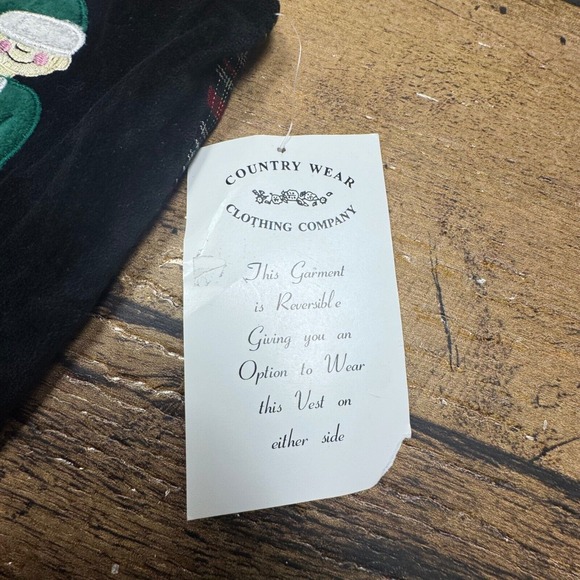 COUNTRY WEAR
CLOTHING COMPANY
This Garment
is Reversible
Giving you an
Option to Wear
this Vest on
either side